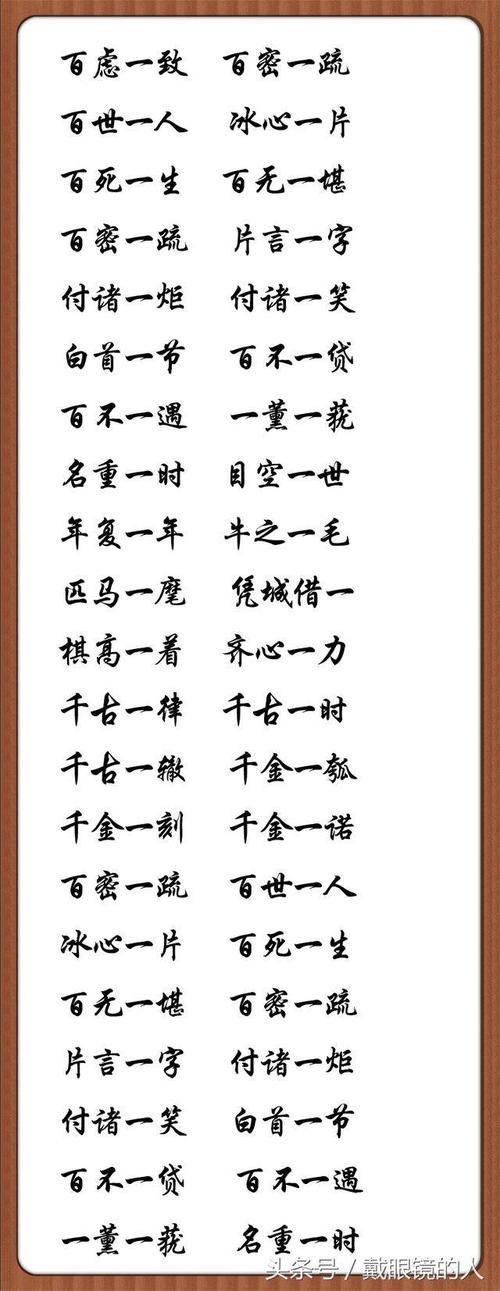 百虑一致 百密一疏
百世一人 冰心一片
百死一生 百无一堪
百密一疏 片言一字
付诸一炬 付诸一笑
白首一节 百不一贷
百不一遇 一薰一莸
名重一时 目空一世
年复一年 牛之一毛
匹马一麾 凭城借一
棋高一着 齐心一力
千古一律 千古一时
千古一辙 千金一瓠
千金一刻 千金一诺
百密一疏 百世一人
冰心一片 百死一生
百无一堪 百密一疏
片言一字 付诸一炬
付诸一笑 白首一节
百不一贷 百不一遇
一薰一莸 名重一时
头条号 / 戴眼镜的人